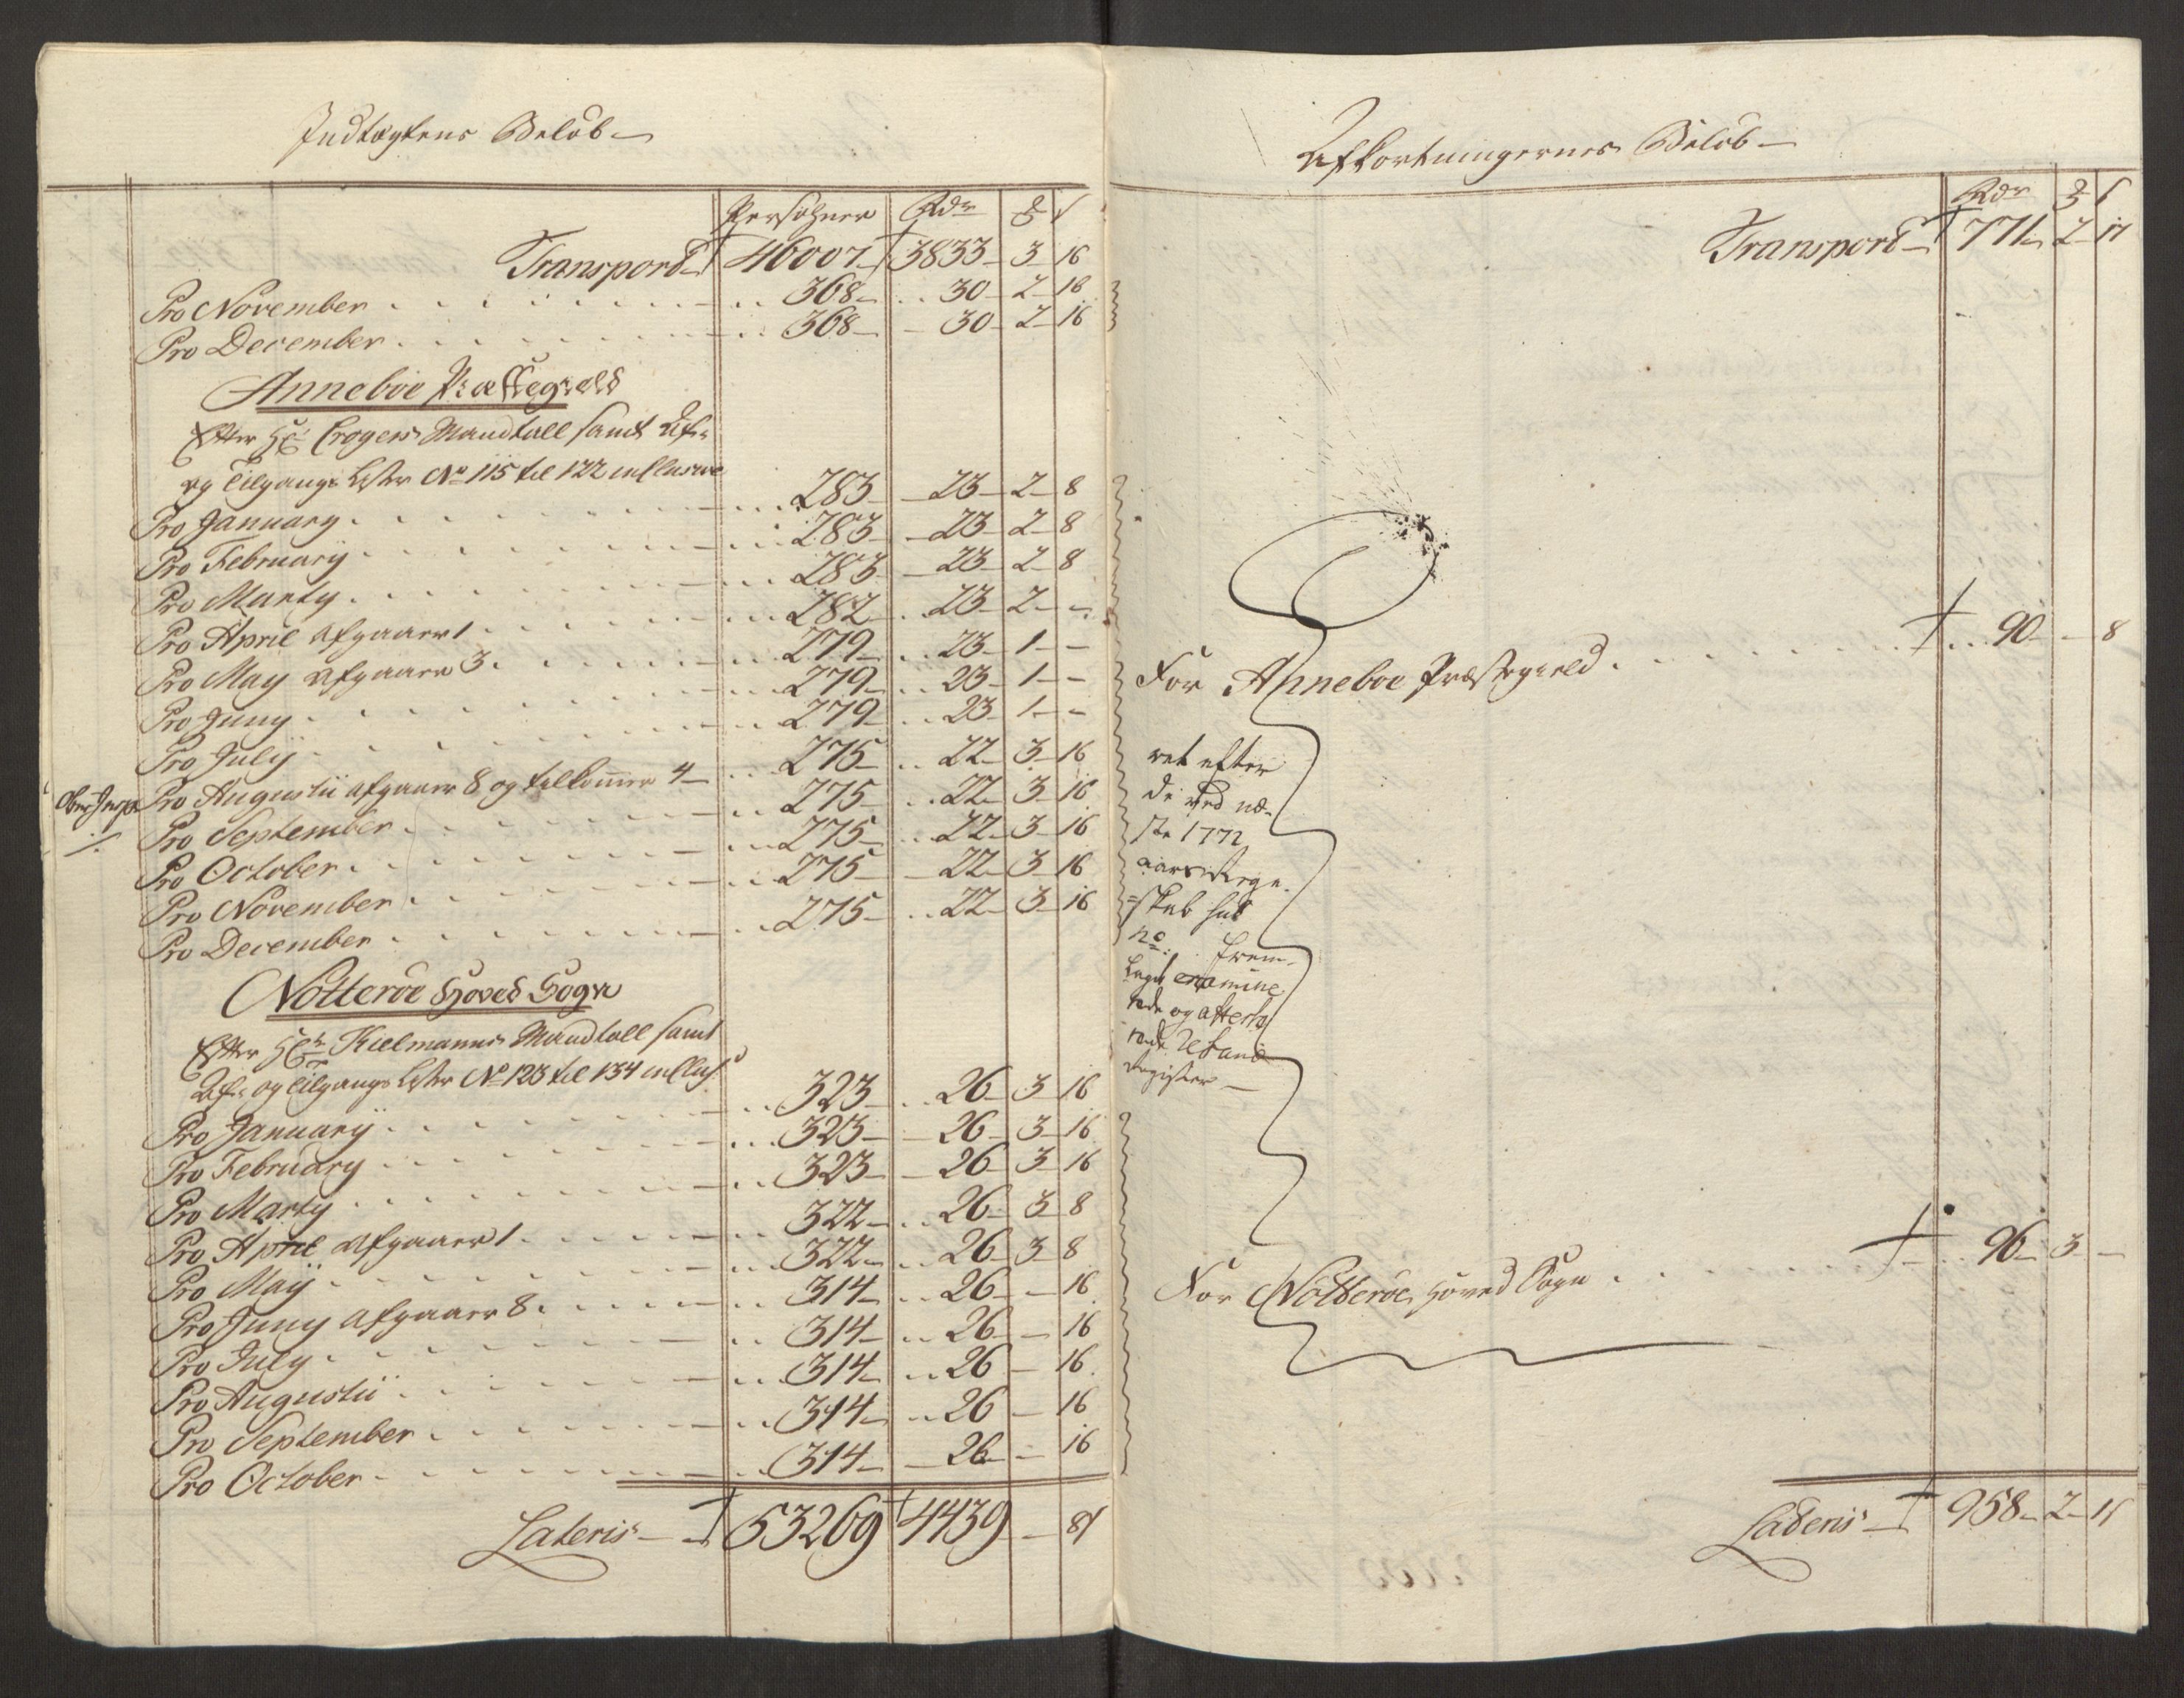 Indtægtens Beløb
Persohner Rdr ß
Transport 46007 3833 3 16
Pro November 368 30 2 16
Pro December 368 30 2 16
Anneboe Præstegield
Efter Hr Crogers Mandtall samt Af-
og Tilgangs Lister No 115 til 122 inclusive
Pro January 283 23 2 8
Pro February 283 23 2 8
Pro Marty 283 23 2 8
Pro April afgaaer 1 282 23 2 -
Pro May afgaaer 3 279 23 1 -
Pro Juny 279 23 1 -
Pro July 279 23 1 -
Pro Augustii afgaaer 8 og tilkommer 4 275 22 3 16
Pro September 275 22 3 16
Pro October 275 22 3 16
Pro November 275 22 3 16
Pro December 275 22 3 16
Nötteröe Hoved Sogn
Efter Hr Kielmanns Mandtall samt
Af- og Tilgangs Lister No 123 til 134 inclus:
Pro January 323 26 3 16
Pro February 323 26 3 16
Pro Marty 323 26 3 16
Pro April afgaaer 1 322 26 3 8
Pro Maÿ 322 26 3 8
Pro Juny afgaaer 8 314 26 - 16
Pro July 314 26 - 16
Pro Augustii 314 26 - 16
Pro September 314 26 - 16
Pro October 314 26 - 16
Lateris 53269 4439 - 8
Afkortningernes Beløb
Rdr ß
Transport 771 2 17
For Anneboe Præstegield 90 - 8
ret efter
de ved næ-
ste 1772
aars Regn-
=skab sub
No: frem-
lagde examine
rede og attest
rede Restanz
Register
For Nötteröe Hoved Sogn 96 3 -
Lateris 958 2